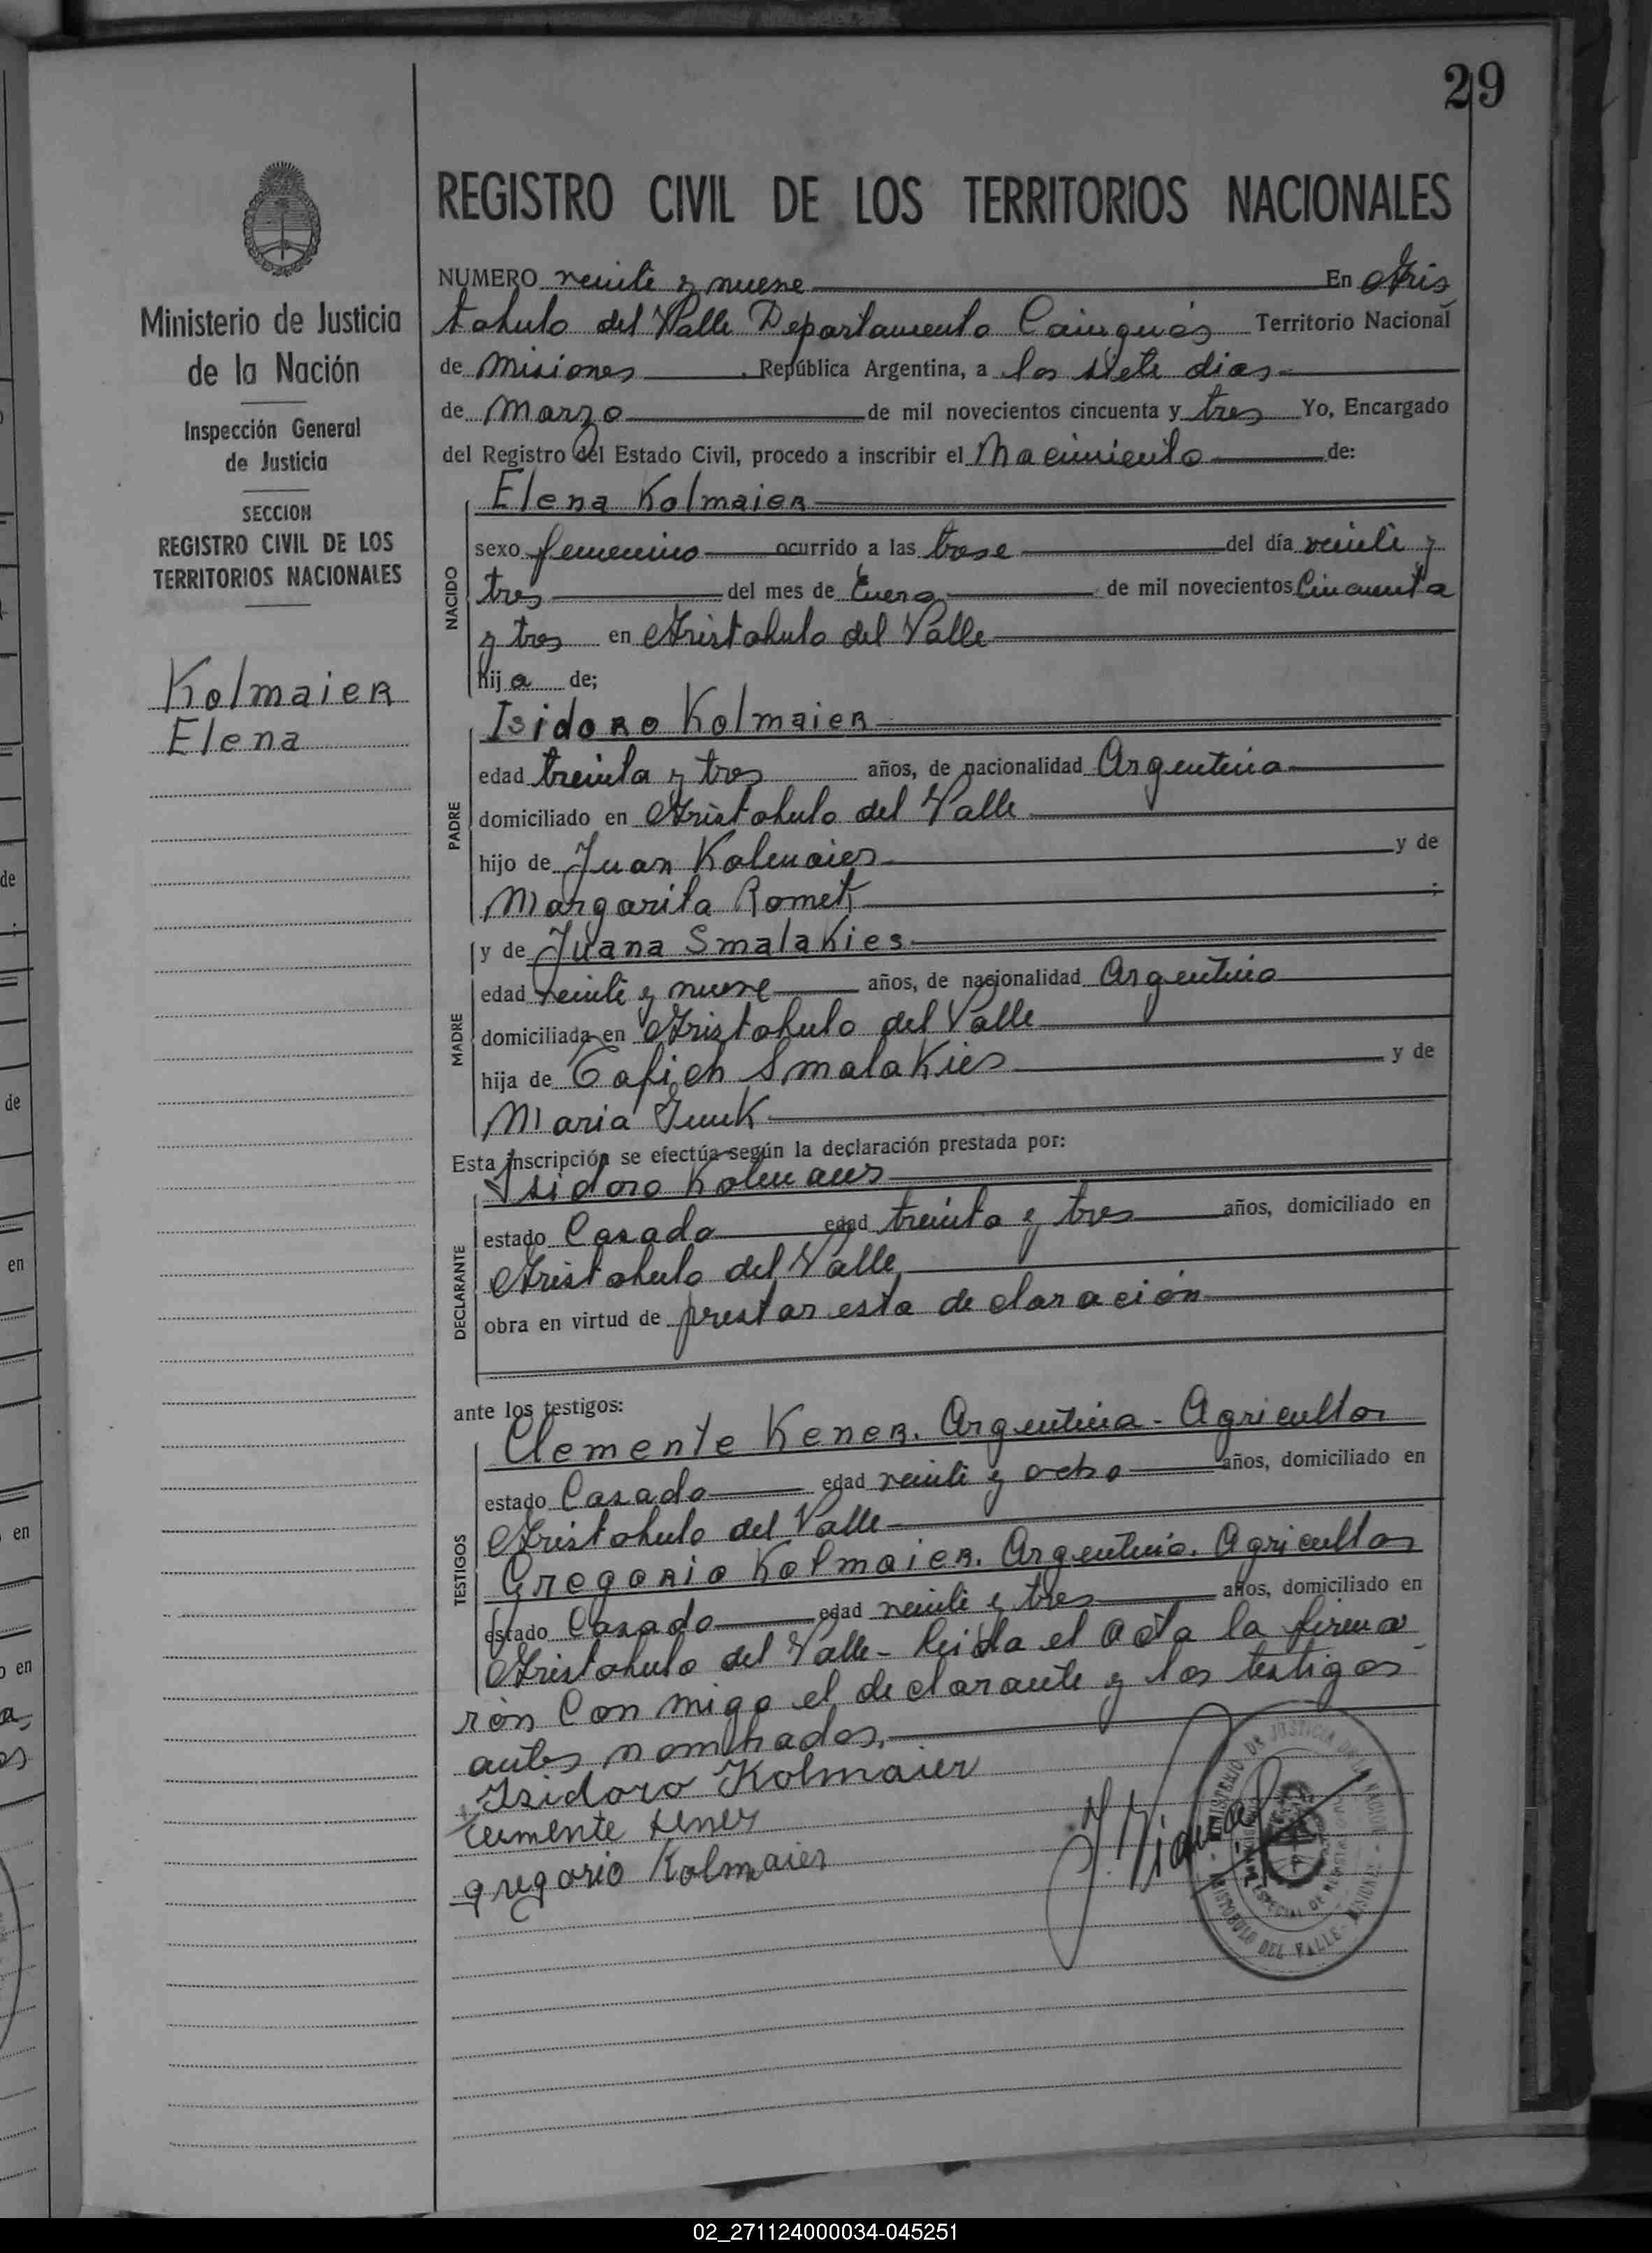 29
REGISTRO CIVIL DE LOS TERRITORIOS NACIONALES
Ministerio de Justicia
de la Nación
Inspección General
de Justicia
SECCION
REGISTRO CIVIL DE LOS
TERRITORIOS NACIONALES
Kolmaier
Elena
NUMERO veinte y nueve En Aris
tobulo del Valle Departamento Cainguás Territorio Nacional
de Misiones República Argentina, a los siete dias
de Marzo de mil novecientos cincuenta y tres Yo, Encargado
del Registro del Estado Civil, procedo a inscribir el Nacimiento de:
NACIDO
Elena Kolmaier
sexo femenino ocurrido a las trese del día veinte y
tres del mes de Enero de mil novecientos Cincuenta
y tres en Aristobulo del Valle
hija de;
PADRE
Isidoro Kolmaier
edad treinta y tres años, de nacionalidad Argentina
domiciliado en Aristobulo del Valle
hijo de Juan Kolmaier y de
Margarita Romek ;
MADRE
y de Juana Smalakies
edad veinte y nueve años, de nacionalidad Argentina
domiciliada en Aristobulo del Valle
hija de Smalakies y de
Maria
Esta inscripción se efectúa según la declaración prestada por:
DECLARANTE
Isidoro Kolmaier
estado Casado edad treinta y tres años, domiciliado en
Aristobulo del Valle
obra en virtud de prestar esta declaración
ante los testigos:
TESTIGOS
Clemente Kener. Argentina - Agricultor
estado Casado edad veinte y ocho años, domiciliado en
Aristobulo del Valle
Gregorio Kolmaier. Argentino. Agricultor
estado Casado edad veinte y tres años, domiciliado en
Aristobulo del Valle - leida el acta la firma
rón Con migo el declarante y los testigos
antes nombrados.
Isidoro Kolmaier
clemente kener
gregorio Kolmaier
MINISTERIO DE JUSTICIA DE LA NACION
ARISTOBULO DEL VALLE - MISIONES
02_271124000034-045251